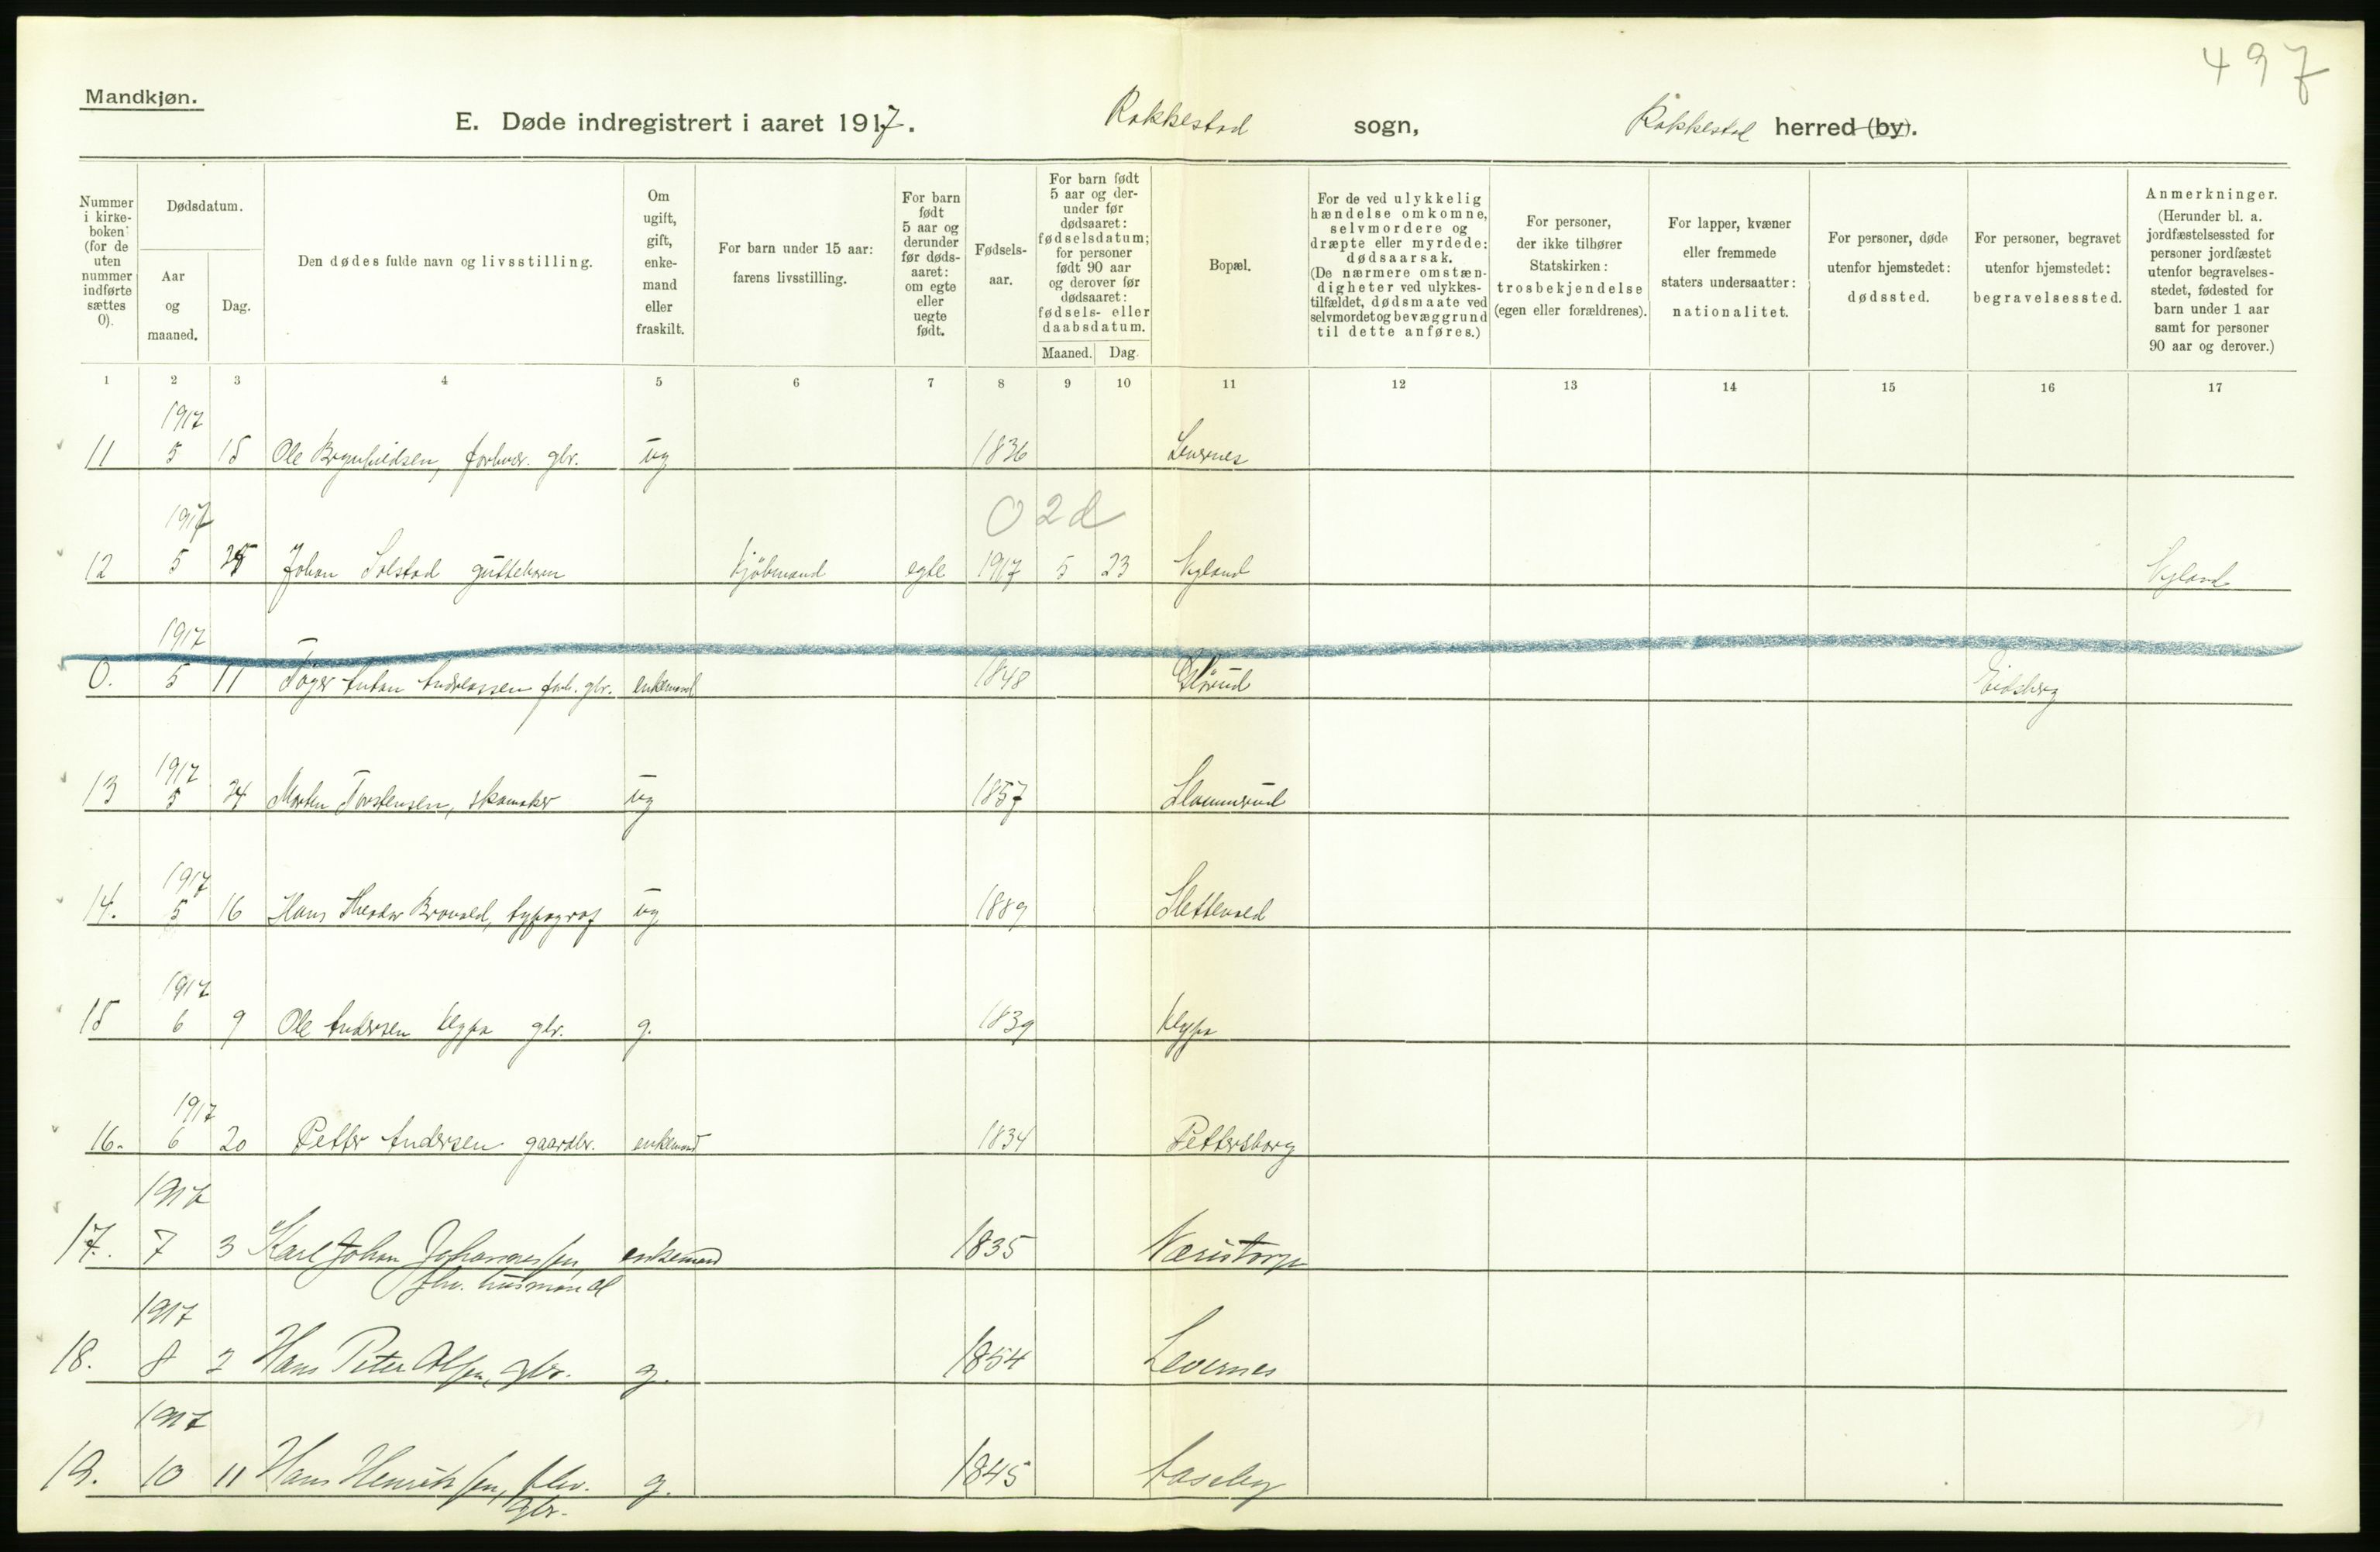 497
Mandkjøn.
E. Døde indregistrert i aaret 1917. Rakkestad sogn, Rakkestad herred (by).
Nummer i kirkeboken (for de uten nummer indførte sættes 0).
Dødsdatum.
Aar og maaned.
Dag.
Den dødes fulde navn og livsstilling.
Om ugift, gift, enkemand eller fraskilt.
For barn under 15 aar: farens livsstilling.
For barn født 5 aar og derunder før dødsaaret: om egte eller uegte født.
Fødselsaar.
For barn født 5 aar og derunder før dødsaaret: fødselsdatum; for personer født 90 aar og derover før dødsaaret: fødsels- eller daabsdatum.
Maaned. Dag.
Bopæl.
For de ved ulykkelig hændelse omkomne, selvmordere og dræpte eller myrdede: dødsaarsak. (De nærmere omstændigheter ved ulykkestilfældet, dødsmaate ved selvmordet og bevæggrund til dette anføres.)
For personer, der ikke tilhører Statskirken: trosbekjendelse (egen eller forældrenes).
For lapper, kvæner eller fremmede staters undersaatter: nationalitet.
For personer, døde utenfor hjemstedet: dødssted.
For personer, begravet utenfor hjemstedet: begravelsessted.
Anmerkninger. (Herunder bl. a. jordfæstelsessted for personer jordfæstet utenfor begravelsesstedet, fødested for barn under 1 aar samt for personer 90 aar og derover.)
1 2 3 4 5 6 7 8 9 10 11 12 13 14 15 16 17
1917
11 5 15 Ole Brynhildsen, forhv. gbr. ug 1836 Levernes
1917 0 2 d
12 5 25 Johan Solstad guttebarn kjøbmand egte 1917 5 23 Nyland Nyland
1917
0. 5 11 Anton Andreassen forh. gbr. enkemand 1848 Eidsberg
1917
13 5 24 Morten Torstensen, skomaker ug 1857
1917
14. 5 16 Hans Theodor typograf ug 1889
1917
15 6 9 Ole Andersen Klypa gbr. g. 1839 Klypa
1917
16. 6 20 Petter Andersen gaardbr. enkemand 1834 Pettersborg
1917
17. 7 3 Karl Johan Johannessen enkemand 1835
fhv. husmand
1917
18. 8 2 Hans Peter Olsen, gbr. g. 1854 Levernes
1917
19. 10 11 Hans Henriksen, fhv. g. 1845 Caseby
gbr.